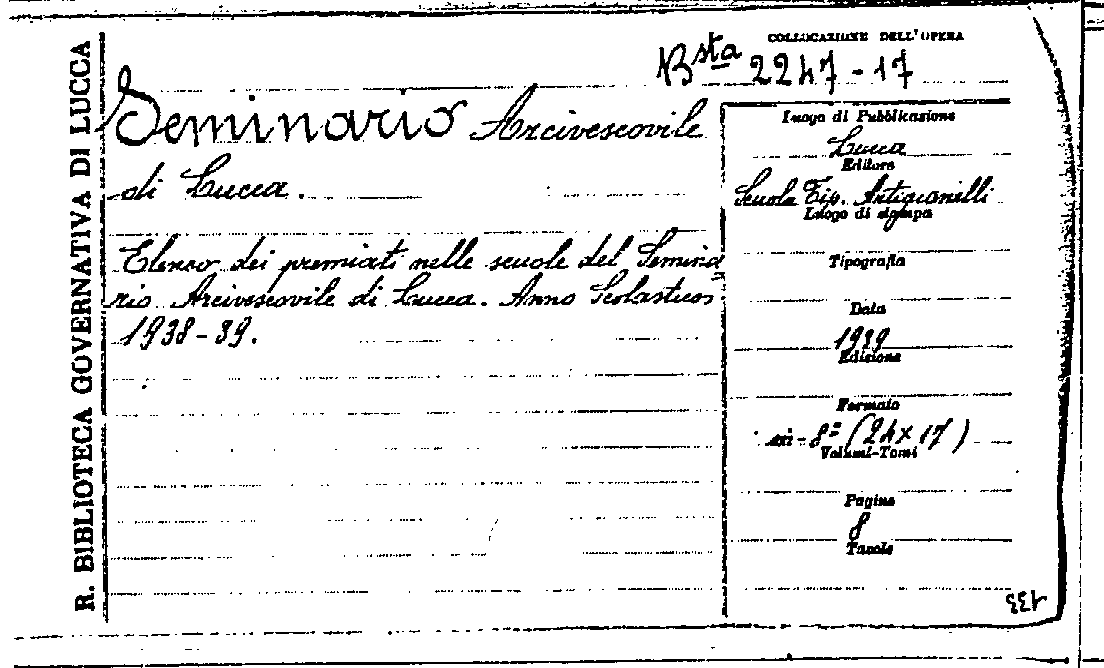 R. BIBLIOTECA GOVERNATIVA DI LUCCA
COLLOCAZIONE DELL'OPERA
Bsta 2247-17
Seminario Arcivescovile
di Lucca.
Elenco dei premiati nelle scuole del Semina
rio Arcivescovile di Lucca. Anno Scolastico
1938-39.
Luogo di Pubblicazione
Lucca
Editore
Scuola Tip. Artigianelli
Luogo di stampa
Tipografia
Data
1939
Edizione
Formato
in-8º (24×17)
Volumi-Tomi
Pagine
8
Tavole
133